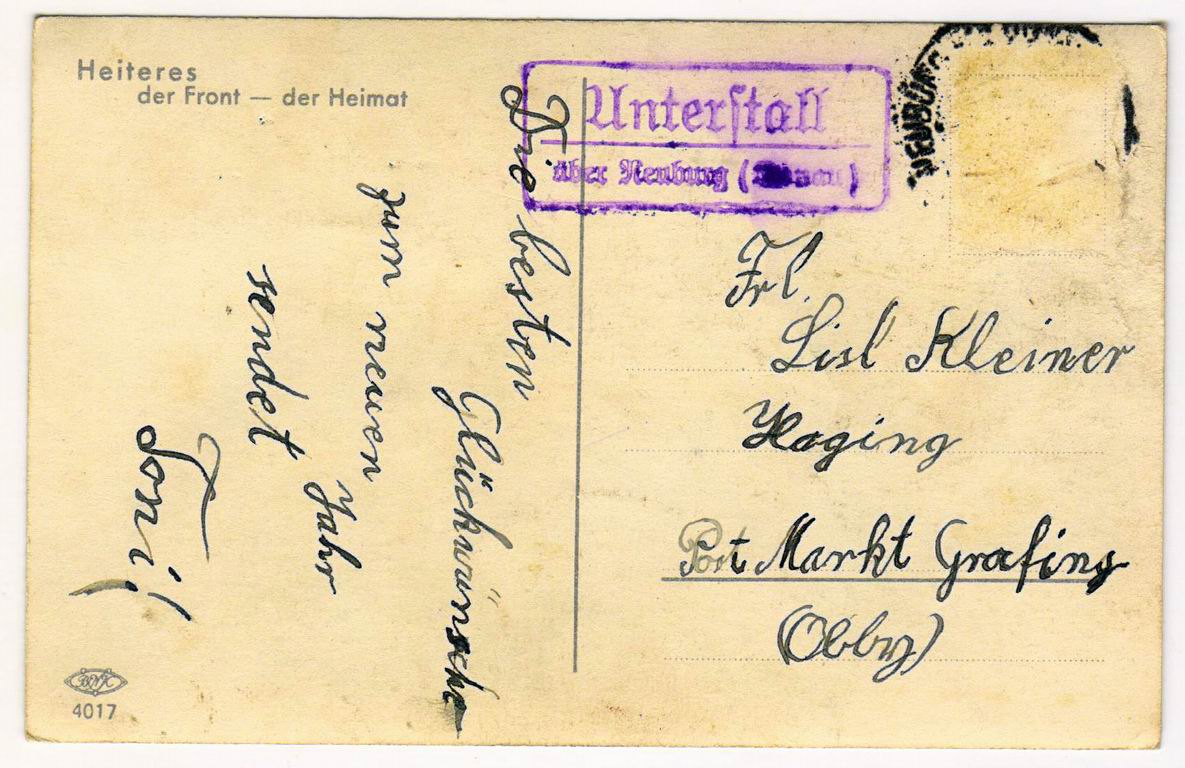 Heiteres
der Front — der Heimat
Unterstall
über Neuburg (Donau)
NEUBURG
Die besten
Glückwünsche
zum neuen Jahr
sendet
Toni!
Frl.
Lisl Kleiner
Haging
Post Markt Grafing
(Obby)
4017